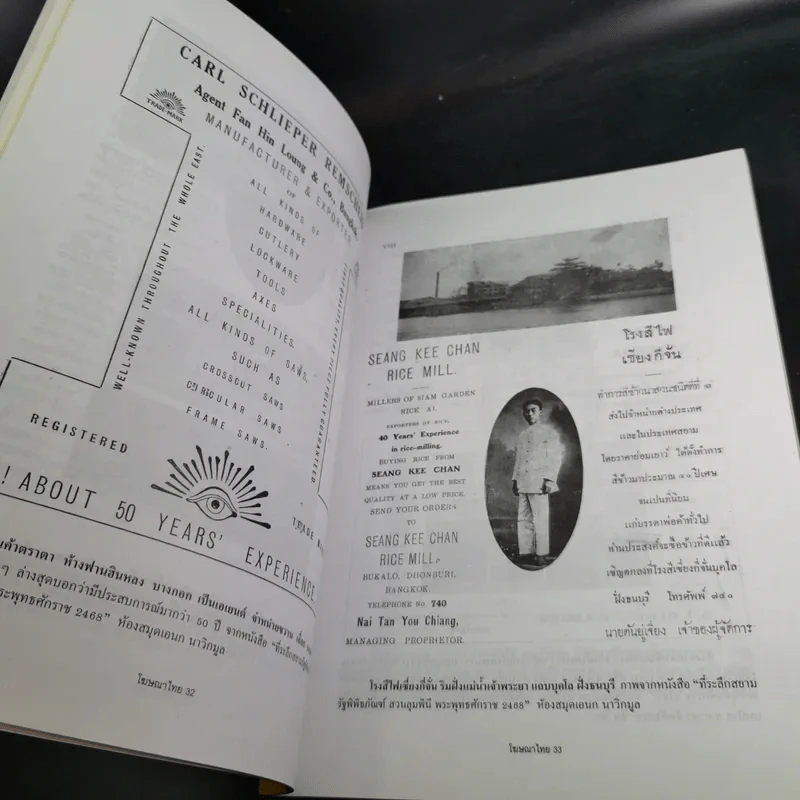 CARL SCHLIEPER REMSCHEID
TRADE-MARK
Agent Fan Hin Loung & Co., Bangkok
MANUFACTURER & EXPORTER
OF
ALL KINDS OF
HARDWARE
CUTLERY
LOCKWARE
TOOLS
AXES
SPECIALITIES.
ALL KINDS OF SAWS,
SUCH AS
CROSSCUT SAWS
CIRCULAR SAWS
FRAME SAWS.
WELL-KNOWN THROUGHOUT THE WHOLE EAST.
FULLY GUARANTEED
REGISTERED
TRADE
! ABOUT 50 YEARS' EXPERIENCE
ตราตา ห้างฟานฮินหลง บางกอก เป็นเอเยนต์ จำหน่ายขวาน เลื่อย
ๆ ล่างสุดบอกว่ามีประสบการณ์มากว่า 50 ปี จากหนังสือ "ที่ระลึกสยามรัฐ
พระพุทธศักราช 2468" ห้องสมุดเอนก นาวิกมูล
โฆษณาไทย 32
VIII
SEANG KEE CHAN
RICE MILL.
MILLERS OF SIAM GARDEN
RICE A1.
EXPORTERS OF RICE.
40 Years' Experience
in rice-milling.
BUYING RICE FROM
SEANG KEE CHAN
MEANS YOU GET THE BEST
QUALITY AT A LOW PRICE.
SEND YOUR ORDERS
TO
SEANG KEE CHAN
RICE MILL.
BUKALO, DHONBURI,
BANGKOK.
TELEPHONE No 740
Nai Tan You Chiang,
MANAGING PROPRIETOR.
โรงสีไฟ
เซียงกี่จั่น
ทำการสีข้าวนาสวนชนิดที่ ๑
ส่งไปจำหน่ายต่างประเทศ
และในประเทศสยาม
โดยราคาย่อมเยาว์ ได้ตั้งทำการ
สีข้าวมาประมาณ ๔๐ ปีเศษ
จนเป็นที่นิยม
แก่บรรดาพ่อค้าทั่วไป
ท่านประสงค์จะซื้อข้าวที่ดีแล้ว
เชิญตกลงที่โรงสีเซี่ยงกี่จั่นบุคโล
ฝั่งธนบุรี โทรศัพท์ ๗๔๐
นายตันยู่เจี่ยง เจ้าของผู้จัดการ
โรงสีไฟเซี่ยงกี่จั่น ริมฝั่งแม่น้ำเจ้าพระยา แถบบุคโล ฝั่งธนบุรี ภาพจากหนังสือ "ที่ระลึกสยาม
รัฐพิพิธภัณฑ์ สวนลุมพินี พระพุทธศักราช 2468" ห้องสมุดเอนก นาวิกมูล
โฆษณาไทย 33